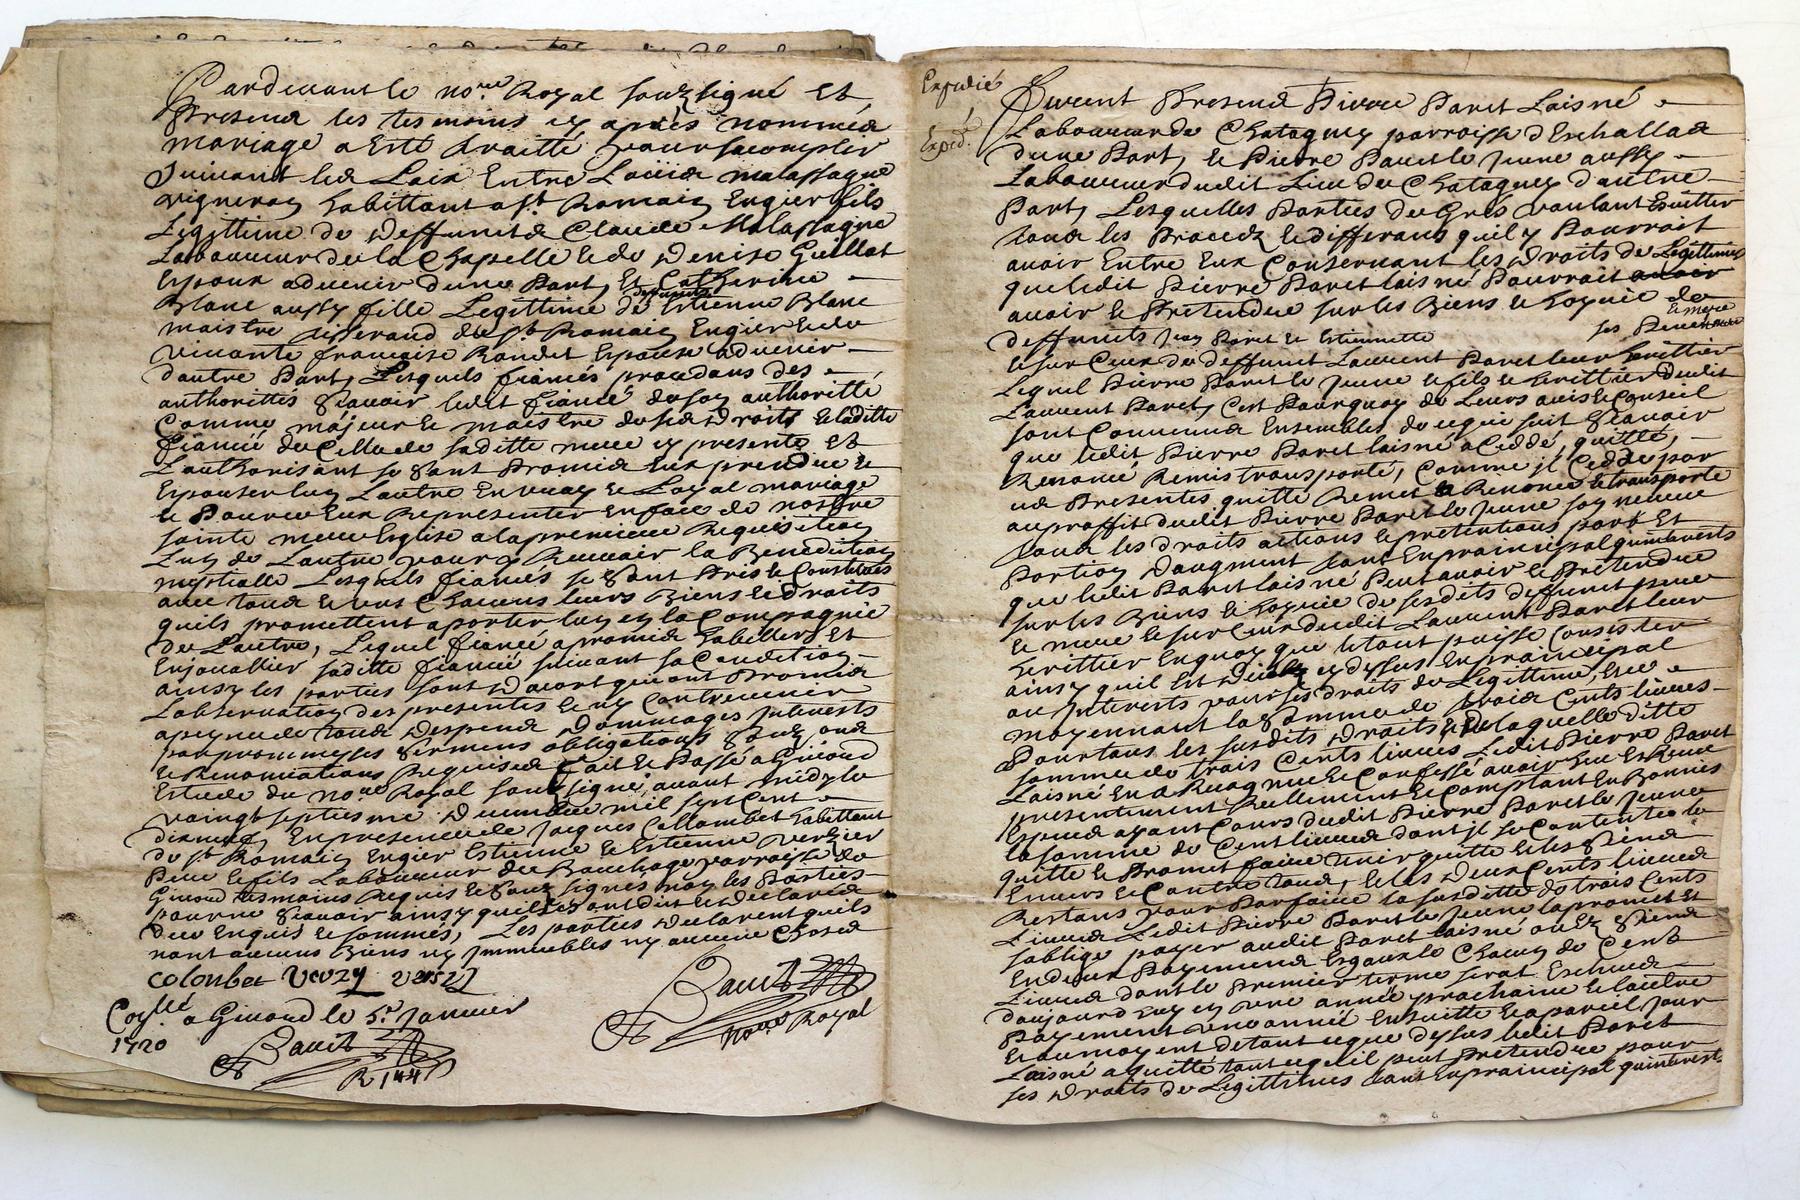 Pardevant le no.re Royal soubsigné et
Presend les tesmoins cy apres nommés
mariage a esté traitté pour sacomplir
suivant les Loix Entre Loüis malassagne
vigneron habittant a st Romain Engier fils
Legittime de deffuncts Claude Malassagne
Laboureur de la Chapelle et de Denise Guillot
Espoux advenir dune Part, Et Catherine
Blanc aussy fille Legittime de deffunct Estienne Blanc
maistre tisserand de st Romain Engier et de
vivante françoise Rondet Espouse advenir
dautre Part, Lesquels fiancés procedans des
authorittés sçavoir ledit fiancé de son authoritté
Comme majeur et maistre de ses droits et laditte
fiancée de Celle de saditte mere cy presente et
Lauthorisant se sont Promis Eux prendre et
Espouser lun Lautre En vray et Loyal mariage
et Pource Eux Representer En face de nostre
sainte mere Eglise a la premiere Requisition
Lun de Lautre pour y Recevoir la Benediction
nuptialle Lesquels fiancés se sont Pris et Constitués
avec tous et uns Chacuns leurs Biens et droits
quils promettent aporter lun en la Compagnie
de Lautre, Lequel fiancé a promis habiller et
Enjouallier saditte fiancée suivant sa Condition
ainsy les parties sont dacort qui ont Promis
Lobservation des presentes et ny Contrevenir
a peyne de tous despens dommages Interests
par promesses sermens obligations soubz
et Renonciations Requises fait et Passé a Givord
Estude du no.re Royal soubsigné, avant midy le
vaingt septiesme decembre mil sept Cent
dixneuf, En presence de Jacques Collombet habittant
de st Romain Engier Estienne et Estienne Verzier
Pere et fils Laboureur de Bouchage parroisse de
Givord tesmoins Requis et soubz signés non les Parties
pour ne sçavoir ainsy quils ont dit et declarés
deue Enquis et sommés, Les parties declarent quils
nont aucuns Biens ny Immeubles ny aucune Choses
colonbet verzy verzy
Collé a Givord le 5.e Janvier
1720
no.re Royal
Expedié
Exped.
Furent Presend Pierre Paret Laisné
Laboureur de Chatagney parroisse dEschallas
dune Part, et Pierre Paret le Jeune aussy
Laboureur dudit Lieu de Chatagney dautre
Part, Lesquelles Parties de Grés voulant Esvitter
tous les Procedz et differans quil y Pourroit
avoir Entre Eux Conservant les droits de Legittime
que ledit Pierre Paret laisné Pourrait
avoir et Pretendre sur les Biens et hoyrie de
ses Pere et mere
deffunts Jean Paret et Estiennette
et sur Ceux de deffunt Laurent Paret leur herittier
Lequel Pierre Paret le Jeune et fils et herittier dudit
Laurent Paret, Cest Pourquoy de Leurs avis et Conseil
sont Convenus Ensembles de ce qui suit sçavoir
que ledit Pierre Paret laisné a Ceddé, quitté,
Renoncé Remis transporté, Comme jl Cedde par
ces Presentes quitte Remet et Renonce et transporte
au proffit dudit Pierre Paret le Jeune son neveu
tous les droits actions et pretentions part et
Portion daugment tant En prainsipal quintverests
que ledit Paret laisné Peut avoir et Pretendre
sur les Biens et hoyrie de sesdits deffunt pere
et mere et sur Ceux dudit Laurent Paret leur
herittier En quoy que le tout puisse Consister
ainsy quil Est cy dessus En prainsipal
ou Jnterests pour ses droits de Legittime, Et ce
moyennant la somme de trois Cents livres
Pour tous les susdits droits, de laquelle ditte
somme de trois Cents livres Ledit Pierre Paret
Laisné En a Recognue et Confessé avoir Eue et Receue
presentement Reellement et Comptant En Bonnes
Espece ayant Cours dudit Pierre Paret le Jeune
la somme de Cent livres dont jl se Contente et
quitte et Promet faire tenir quitte et les siens
Envers et Contre tous, et les deux Cents livres
Restans pour Parfaire la susditte de trois Cents
Livres Ledit Pierre Paret le Jeune la promet et
soblige payer audit Paret laisné ou Ez siens
En deux Payemens Esgaux Chacun de Cent
Livres dont le Premier terme serat Escheus
daujourdhuy en une année prochaine et lautre
Payement une année Ensuitte et a pareil jour
Et au moyent de tout ce que dessus ledit Paret
Laisné a quitté tout ce quil peut pretendre pour
ses droits de Legittimes tant En prainsipal quintverest